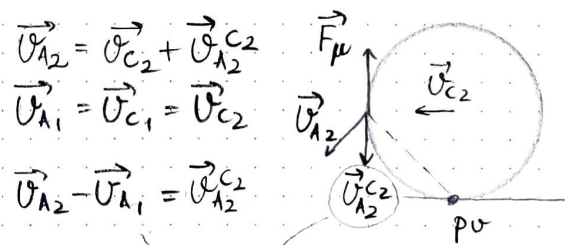 v⃗_A₂ = v⃗_C₂ + v⃗_A₂^C₂
v⃗_A₁ = v⃗_C₁ = v⃗_C₂
v⃗_A₂ - v⃗_A₁ = v⃗_A₂^C₂
F⃗_μ
v⃗_C₂
v⃗_A₂
v⃗_A₂^C₂
pv